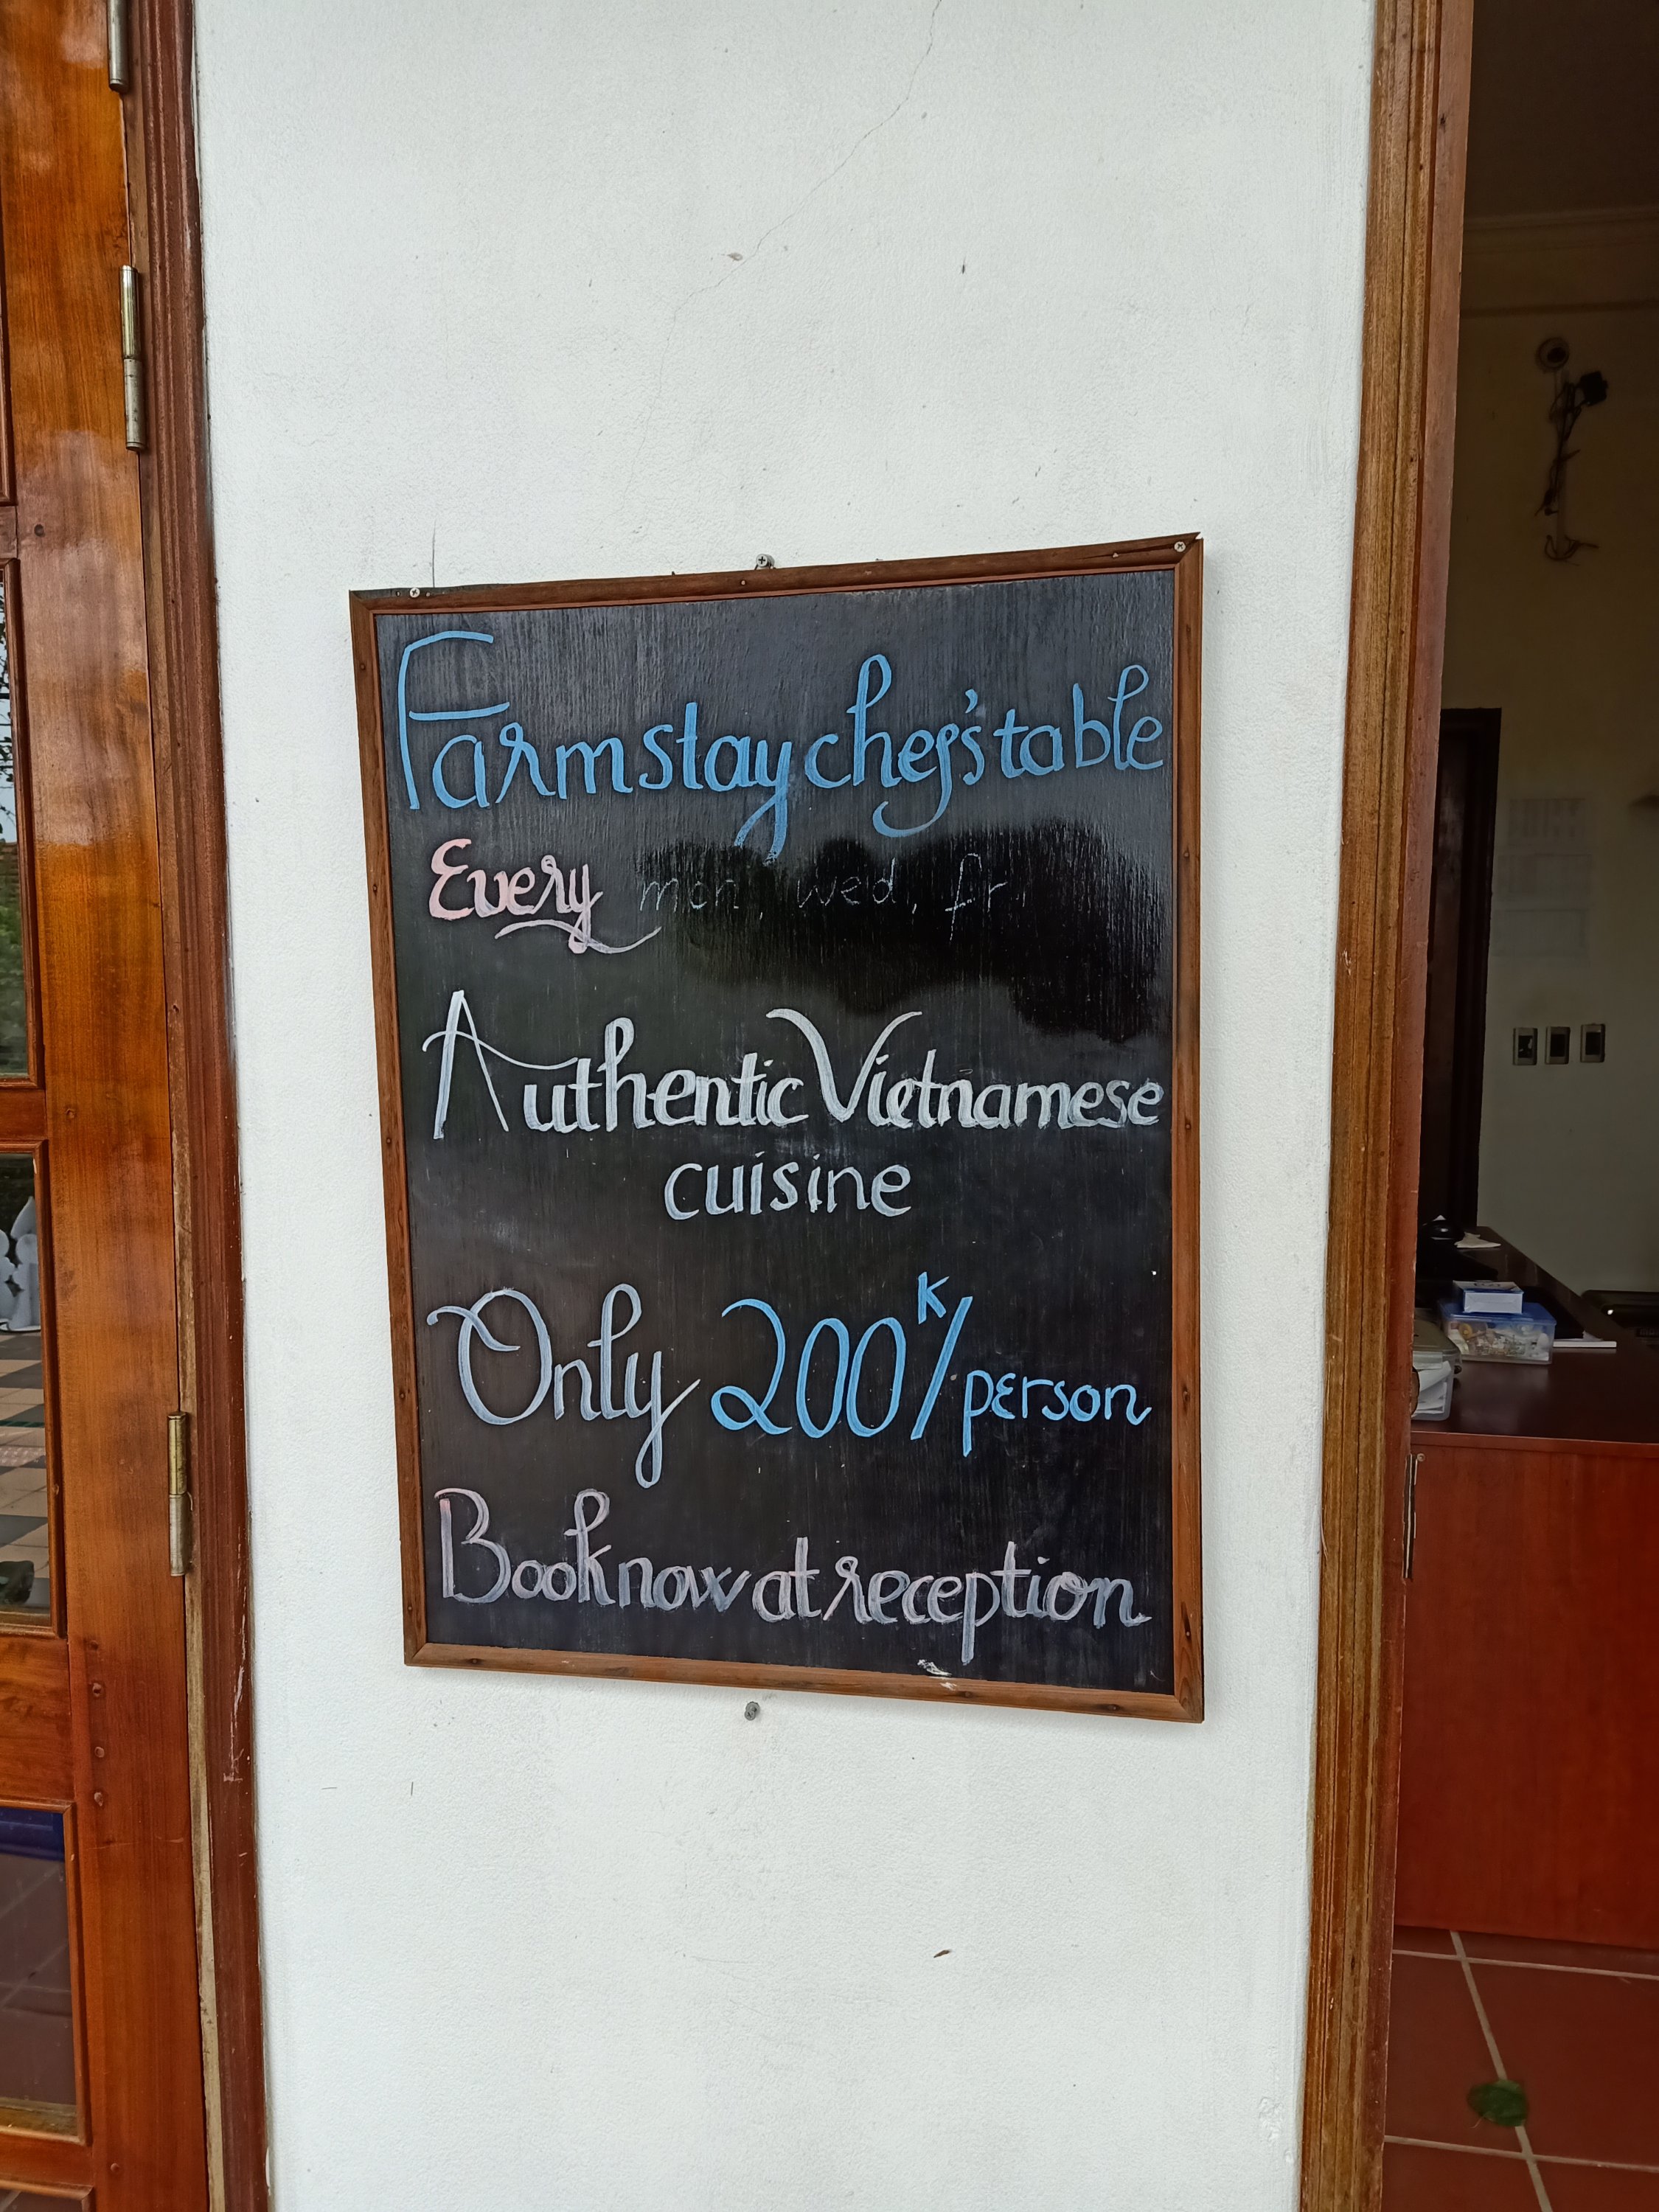 Farmstay chef's table
Every mon, wed, fri
Authentic Vietnamese
cuisine
Only 200K/person
Book now at reception